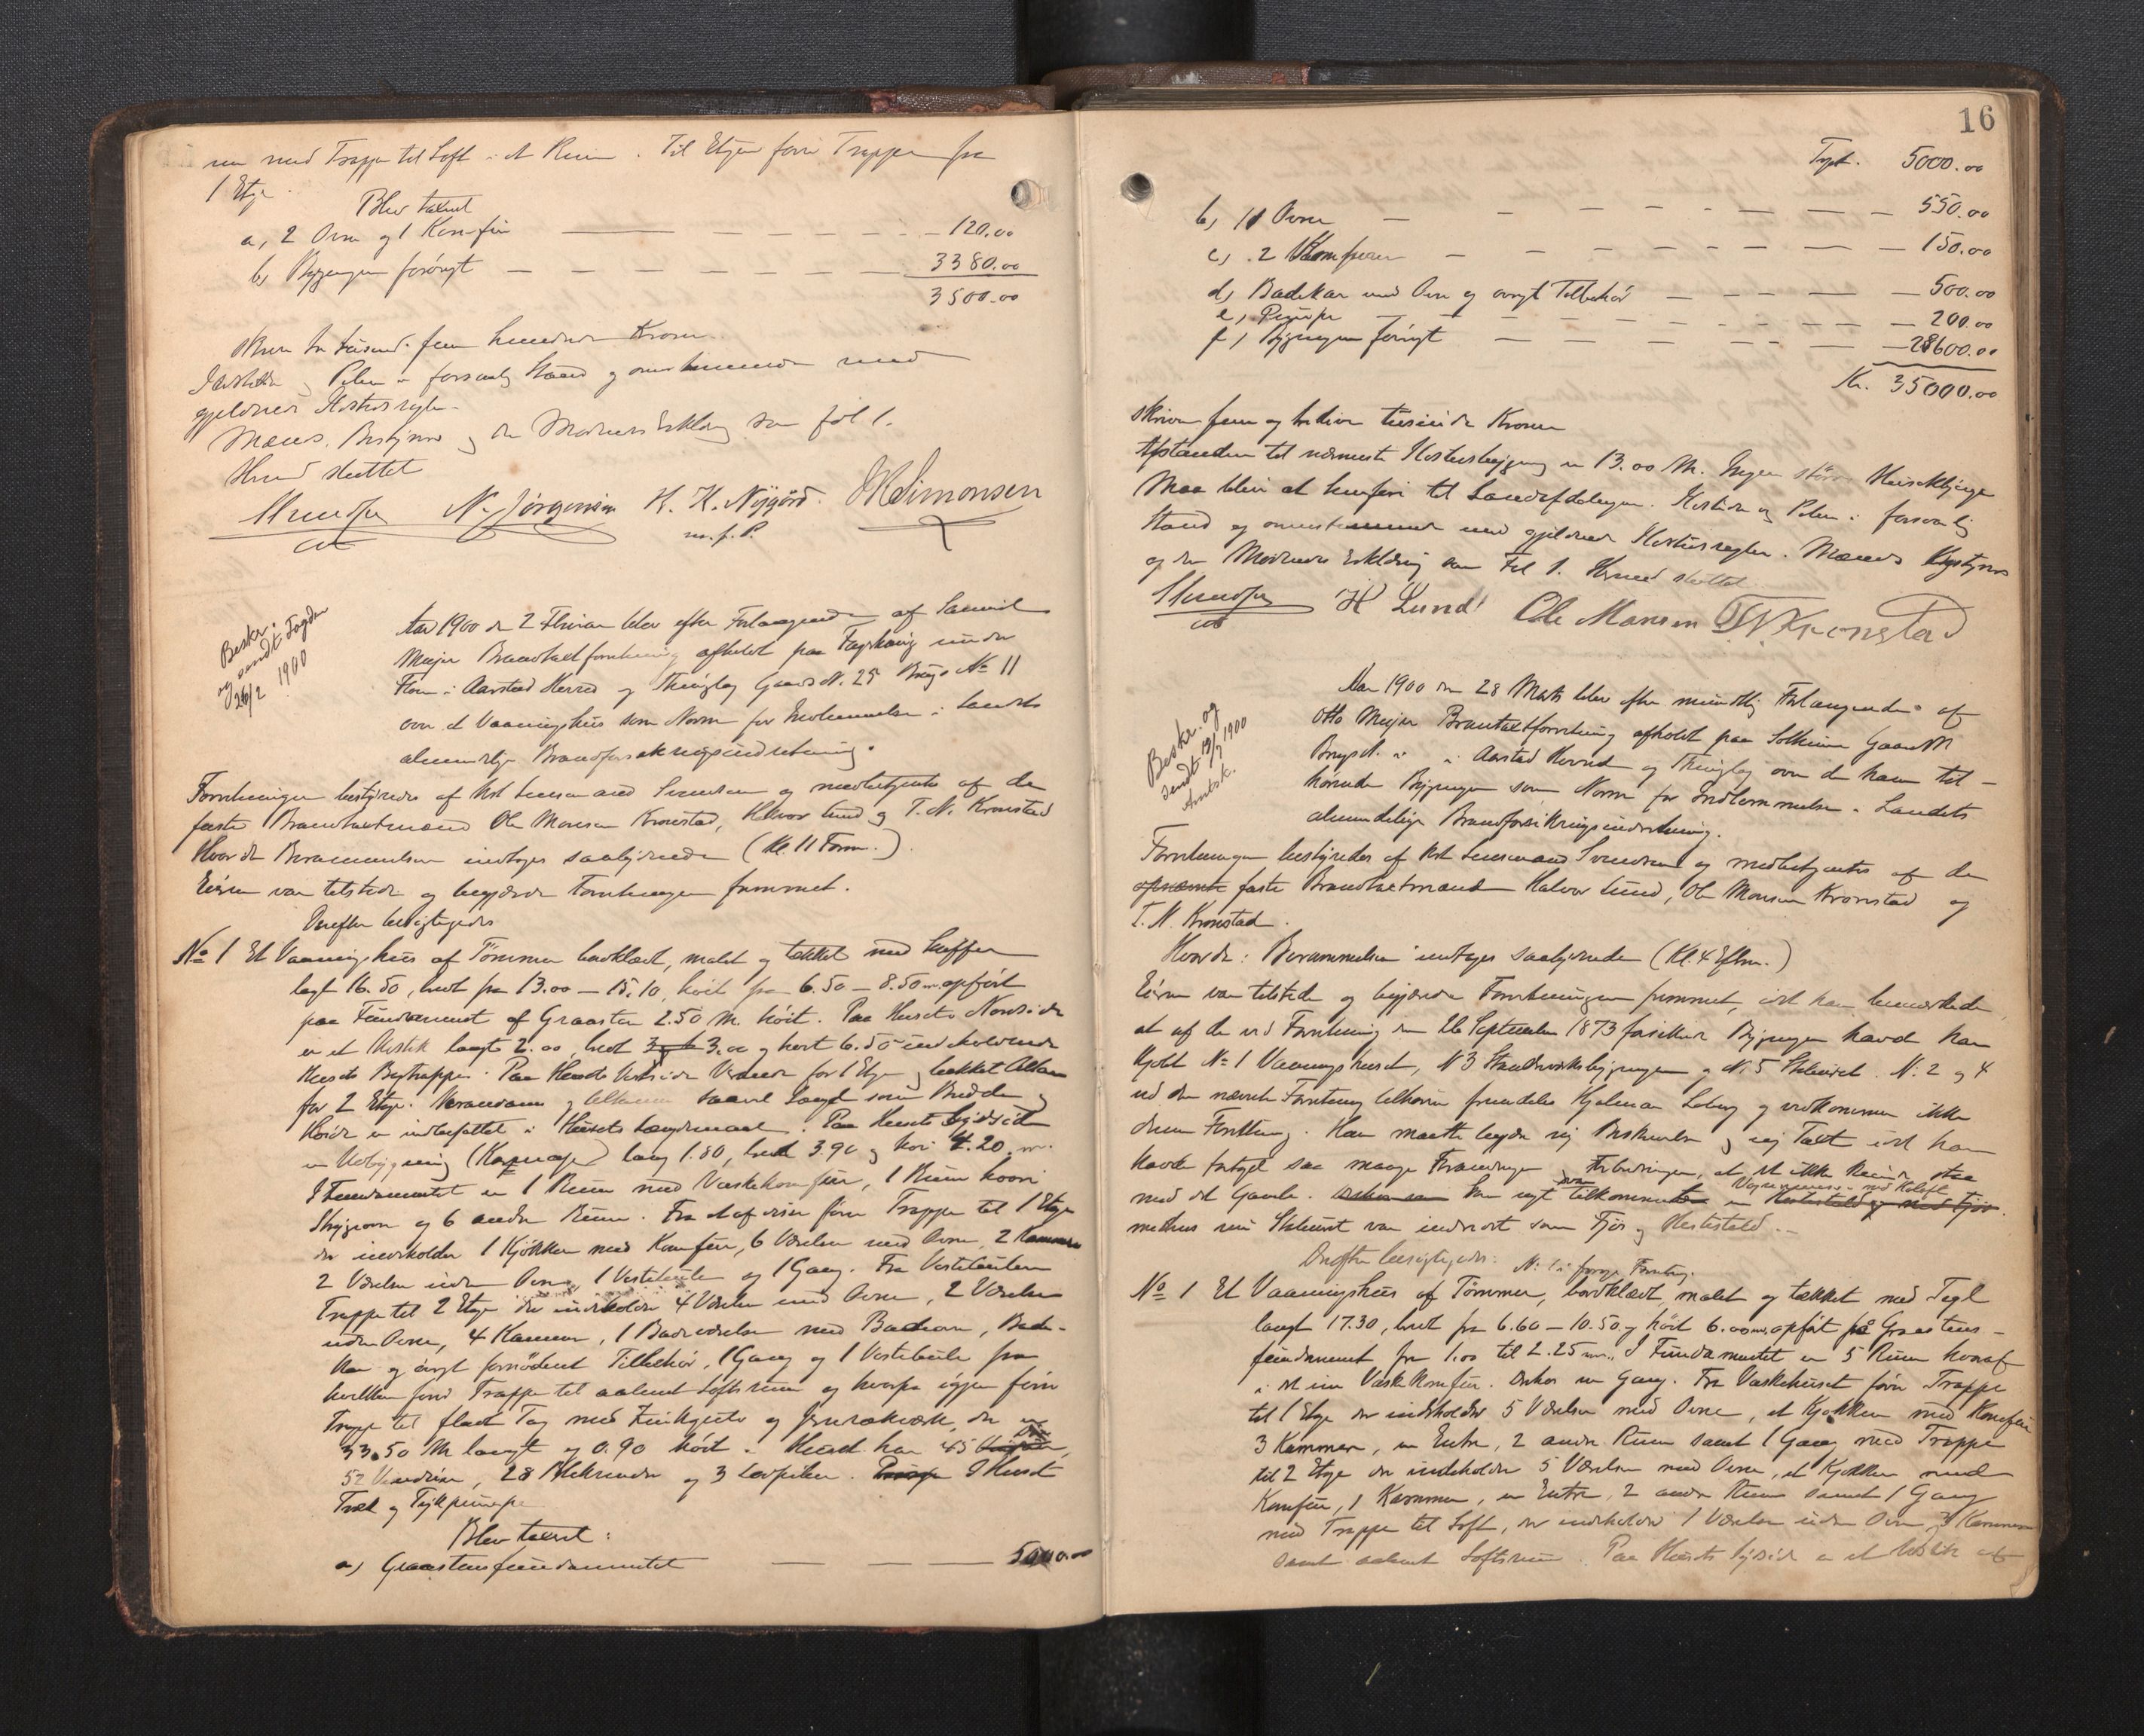 med Trappe til Loft i et Rum. Til Etgen fører Trappe fra
1 Etge.
Blev taxeret
a, 2 Ovne og 1 Komfür — 120.00
b, Bygningen forövrigt — 3380.00
3500.00
skriver tre tusende fem hundrede Kroner.
Ildsteder og Piber i forsvarlig Stand og overensstemmende med
gjeldende
Mænd, Bestyrer og de Mødendes Erklæring som fol 1.
Hermed sluttet
N. Jørgensen H. K. Nygård. Simonsen
m. f. P.
Beskr.
og sendt Fogden
26/2 1900
Aar 1900 den 2 Februar blev efter Forlangende af
Meyer Brandtaxtforretning afholdt paa under
i Aarstad Herred og Thinglag Gaards N. 25 Brugs No 11
over et Vaaningshus som Norm for Indlemmelse i Landets
almindelige Brandforsikringsindretning.
Forretningen bestyredes af Kst Lensmand Svendsen og medbetjentes af de
faste Brandtaxtmænd Ole Monsen Kronstad, Halvor Lund og T. N. Kronstad
Hvor da Berammelsen indtages saalydende (Kl. 11 Form.)
Eieren var tilstede og begjærede Forretningen fremmet.
Derefter besigtigedes
No 1 Et Vaaningshus af Tømmer bordklædt, malet og tækket med Skiffer
langt 16.50, bredt fra 13.00 — 15.10, höit fra 6.50 — 8.50 m. opfört
paa Fundament af Graasten 2.50 M. höit. Paa Husets Nordside
er et Udstik langt 2.00, bredt 3.00 og höit 6.50 indeholdende
Husets Bagtrappe. Paa Husets Vestside Veranda for 1 Etge og dækket Altan
for 2 Etge. Verandaens og Altanens saavel Længde som Bredde og
Höide er indbefattet i Husets Længdemaal. Paa Husets Sydside
en Udbygning (Karnap) lang 1.80, bredt 3.90 og höi 4.20 m.
I Fundamentet er 1 Rum med Vaskekomfür, 1 Rum hvori
og 6 andre Rum. Fra et af disse fører Trappe til 1 Etge
der indeholder 1 Kjökken med Komfür, 6 Værelser med Ovne, 2 Kammere
2 Værelser uden Ovne, 1 Vestibule og 1 Gang. Fra Vestibulen
Trappe til 2 Etge der indeholder 4 Værelser med Ovne, 2 Værelser
uden Ovne, 4 Kammer, 1 Badeværelse med Badeovn, Bade-
kar og övrigt fornödent Tilbehör, 1 Gang og 1 Vestibule fra
hvilken fører Trappe til aabent Loftsrum og hvorfra igjen fører
Trappe til fladt Tag med Zinkgulv og Jernrækværk, der er
33.50 M langt og 0.90 höit. Huset har 45 Döre,
52 Vinduer, 28 og 3 Lodpiber. I Huset
Træk og Trykpumpe
Blev taxeret:
a) Graastensfundamentet — 5000.00
16
Trpt. 5000.00
b, 11 Ovne — 550.00
c, 2 Komfürer — 150.00
d, Badekar med Ovn og övrigt Tilbehör — 500.00
e, Pumpe — 200.00
f, Bygningen forövrigt — 28600.00
Kr. 35000.00
skriver fem og tredive tusinde Kroner
Afstanden til nærmeste Hosbebygning er 13.00 M. Ingen större
Maa blive at henføre til Landafdelingen. Ildsteder og Piber i forsvarlig
Stand og overensstemmende med gjeldende
og de Mødendes Erklæring som Fol 1. Hermed sluttet.
H Lund Ole Monsen T. N. Kronstad
Beskr. og
sendt 13/7 1900
Amtsk.
Aar 1900 den 28 Marts blev efter mundtlig Forlangende af
Otto Meyer Brandtaxtforretning afholdt paa Solheim Gaards N
Brugs N. " i Aarstad Herred og Thinglag over de ham til-
hørende Bygninger som Norm for Indlemmelse i Landets
almindelige Brandforsikringsindretning.
Forretningen bestyredes af Kst Lensmand Svendsen og medbetjentes af de
opnævnte faste Brandtaxtmænd Halvor Lund, Ole Monsen Kronstad og
T. N. Kronstad.
Hvor da: Berammelsen indtages saalydende (Kl. 4 Efterm.)
Eieren var tilstede og begjærede Forretningen fremmet, idet han bemærkede
at af de ved Forretning den 26 September 1873 forsikrede Bygninger havde han
kjöbt No 1 Vaaningshuset, N 3 Standværksbygningen og N. 5 Stenhuset. N. 2 og 4
ved den nævnte Forretning tilhører fremdeles Hjalmar Loberg og vedkommer ikke
denne Forretning. Han maatte begjære ny Beskrivelse og ny Taxt idet han
havde foretaget saa mange Forandringer og Forbedringer, at det ikke kunde staa
med det Gamle. Som nyt var tilkommet en med Höloft
medens Stenhuset var indredet som Fjös og Hestestald.
Derefter besigtigedes: N. 1 i forrige Forretning.
No 1 Et Vaaningshus af Tømmer, bordklædt, malet og tækket med Tegl
langt 17.30, bredt fra 6.60 — 10.50 og höit 6.00 m. opfört på Graastens-
fundament fra 1.00 til 2.25 m. I Fundamentet er 5 Rum hvoraf
i det ene Vaskekomfür. Desuden en Gang. Fra Vaskehuset fører Trappe
til 1 Etge der indeholder 5 Værelser med Ovne, et Kjøkken med Komfür
3 Kammer, en Entre, 2 andre Rum samt 1 Gang med Trappe
til 2 Etge der indeholder 5 Værelser med Ovne, et Kjøkken med
Komfür, 1 Kammer, en Entre, 2 andre Rum samt 1 Gang
med Trappe til Loft, der indeholder 1 Værelse uden Ovn, 3 Kammere
samt aabent Loftsrum. Paa Husets Sydside er et Udstik af